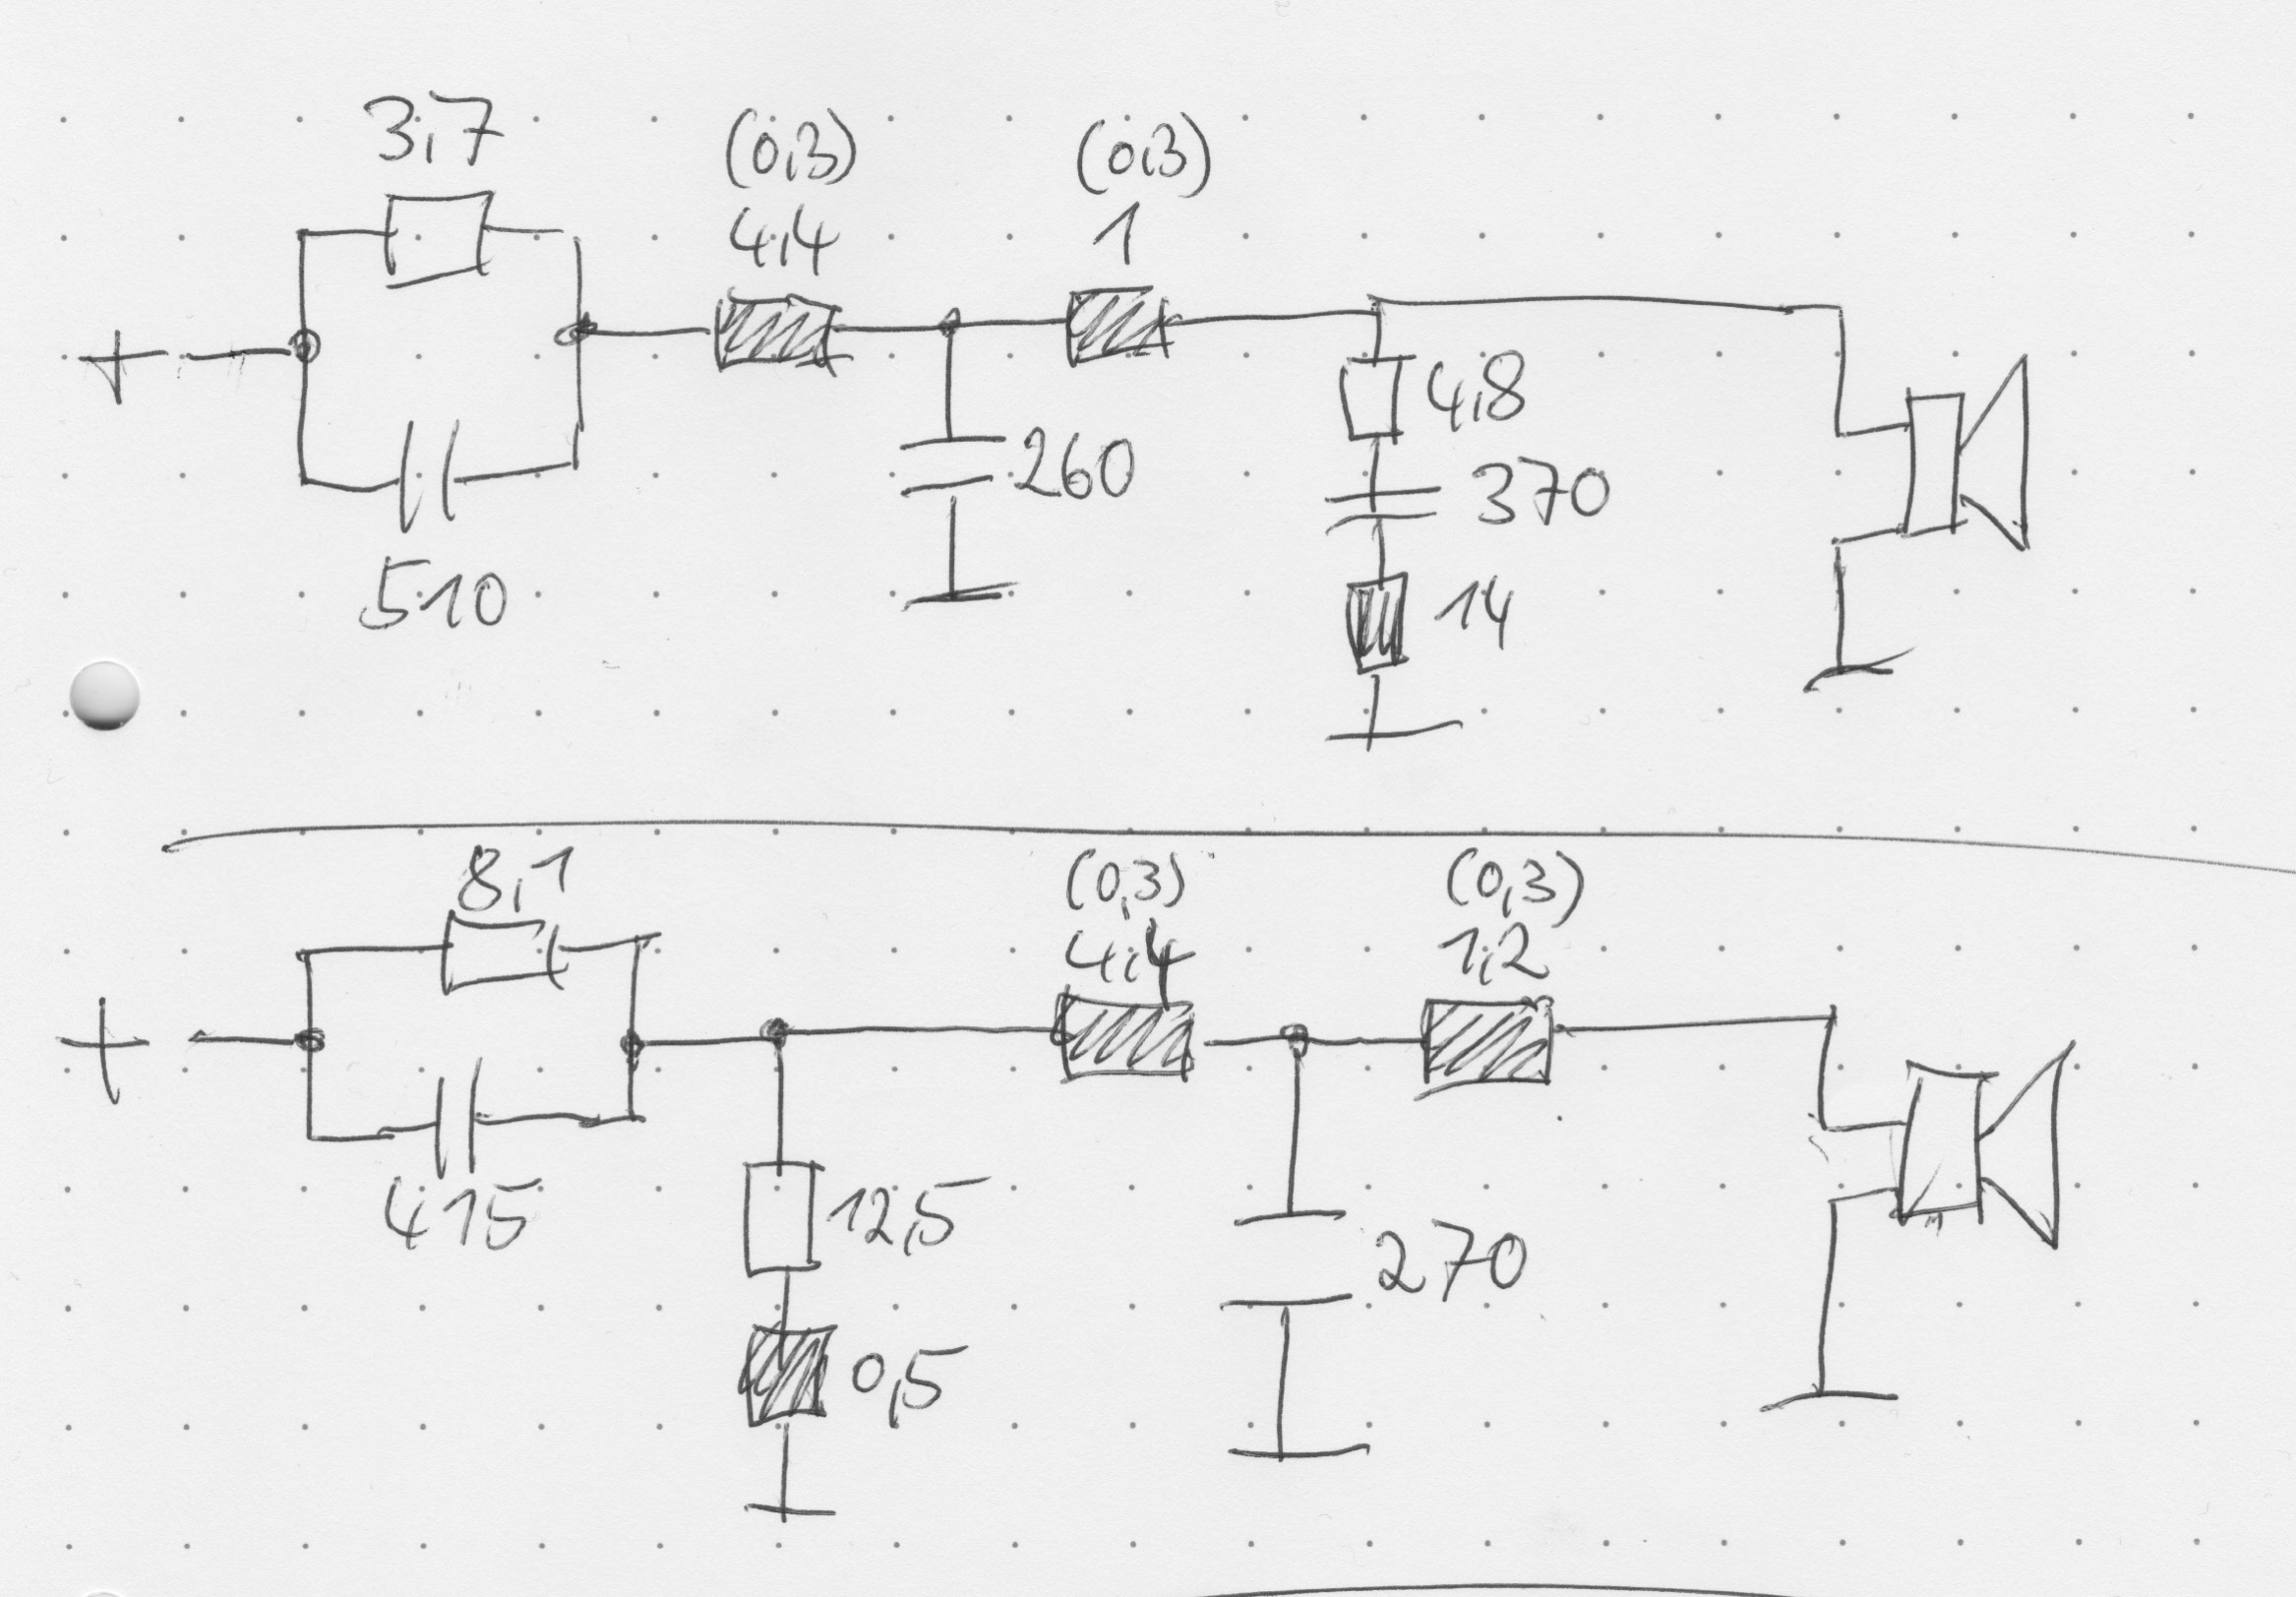 3,7
(0,3) (0,3)
4,4 1
+
4,8
260
370
510
14
8,1
(0,3) (0,3)
4,4 1,2
+
415
12,5
270
0,5